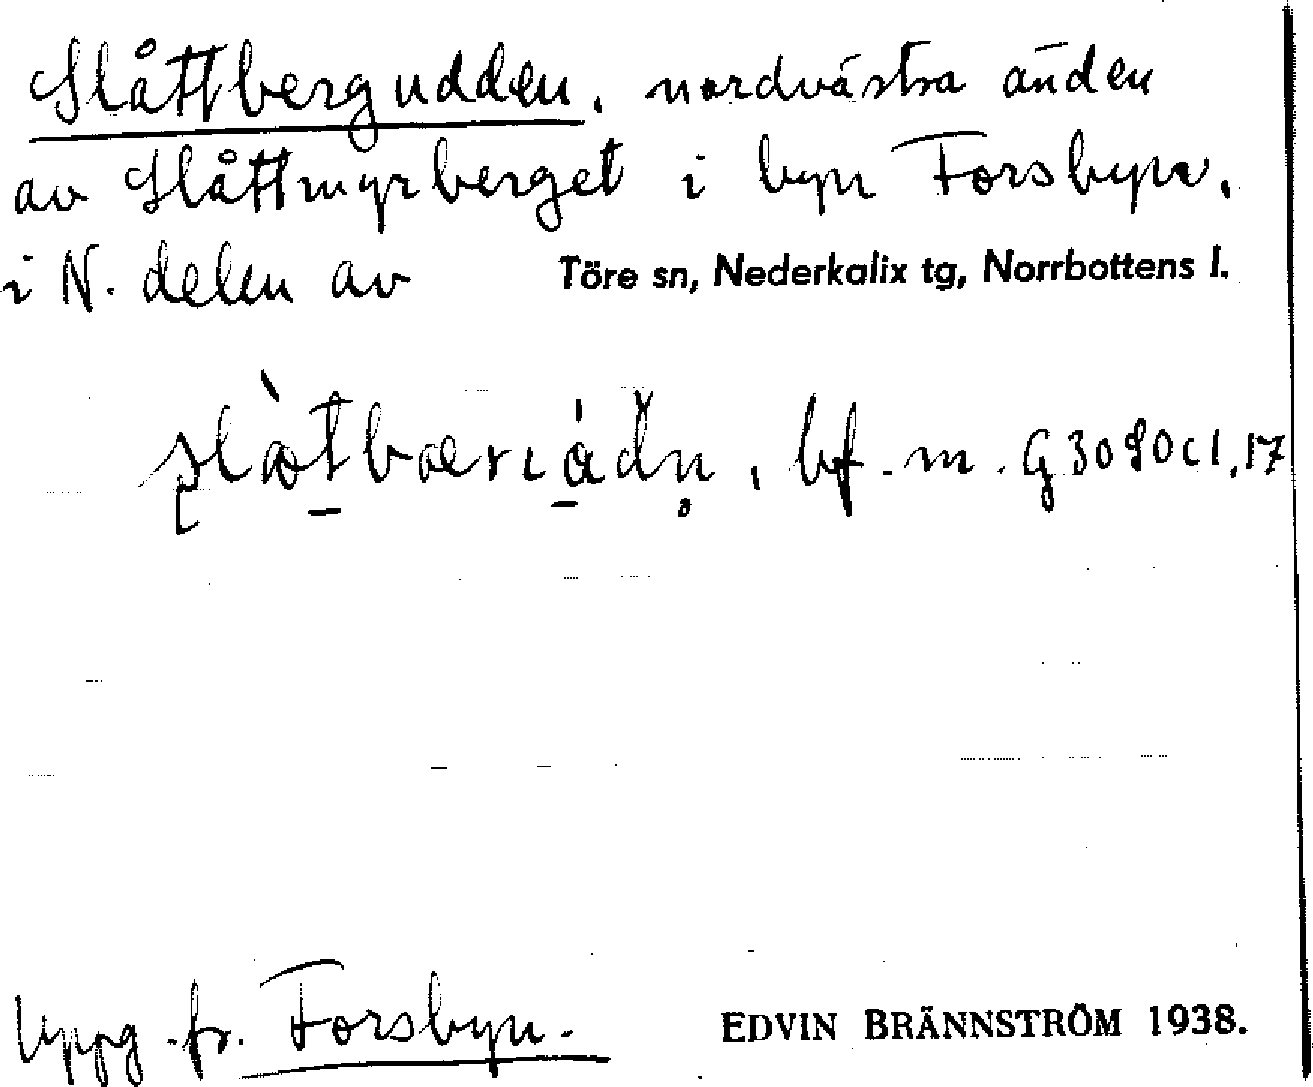 Slåttbergudden, nordvästra änden
av Slåttmyrberget i byn Forsbyn,
i N. delen av Töre sn, Nederkalix tg, Norrbottens l.
bf. m.
Uppg. fr. Forsbyn.
EDVIN BRÄNNSTRÖM 1938.